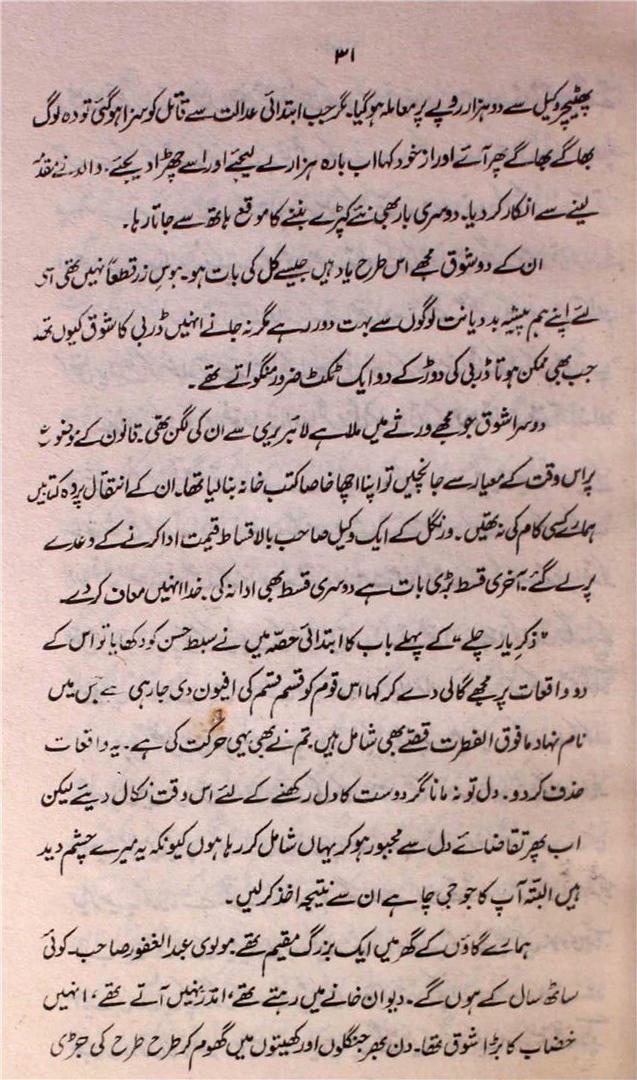 ۳۱
پھٹیچر وکیل سے دو ہزار روپے پر معاملہ ہو گیا۔ مگر جب ابتدائی عدالت سے قاتل کو سزا ہو گئی تو وہ لوگ
بھاگے بھاگے پھر آئے اور از خود کہا اب بارہ ہزار لے لیجئے اور اسے چھڑا دیجئے۔ والد نے مقدمہ
لینے سے انکار کر دیا۔ دوسری بار بھی نئے کپڑے بننے کا موقع ہاتھ سے جاتا رہا۔
ان کے دو شوق مجھے اس طرح یاد ہیں جیسے کل کی بات ہو۔ ہوسِ زر قطعاً نہیں تھی اسی
لئے اپنے ہم پیشہ بد دیانت لوگوں سے بہت دور رہے مگر نہ جانے انہیں ڈربی کا شوق کیوں تھا
جب بھی ممکن ہوتا ڈربی کی دوڑ کے دو ایک ٹکٹ ضرور منگواتے تھے۔
دوسرا شوق جو مجھے ورثے میں ملا ہے لائبریری سے ان کی لگن تھی۔ قانون کے موضوع
پر اس وقت کے معیار سے جانچیں تو اپنا اچھا خاصا کتب خانہ بنا لیا تھا۔ ان کے انتقال پر وہ کتابیں
ہمارے کسی کام کی نہ تھیں۔ ورنگل کے ایک وکیل صاحب بالاقساط قیمت ادا کرنے کے وعدے
پر لے گئے۔ آخری قسط بڑی بات ہے دوسری قسط بھی ادا نہ کی۔ خدا انہیں معاف کر دے۔
"ذکرِ یار چلے" کے پہلے باب کا ابتدائی حصّہ میں نے سبط حسن کو دکھایا تو اس کے
دو واقعات پر مجھے گالی دے کر کہا اس قوم کو قسم قسم کی افیون دی جا رہی ہے جس میں
نام نہاد مافوق الفطرت قصّے بھی شامل ہیں۔ تم نے بھی یہی حرکت کی ہے۔ یہ واقعات
حذف کر دو۔ دل تو نہ مانا مگر دوست کا دل رکھنے کے لئے اس وقت نکال دیئے لیکن
اب پھر تقاضائے دل سے مجبور ہو کر یہاں شامل کر رہا ہوں کیونکہ یہ میرے چشم دید
ہیں البتّہ آپ کا جو جی چاہے ان سے نتیجہ اخذ کر لیں۔
ہمارے گاؤں کے گھر میں ایک بزرگ مقیم تھے مولوی عبدالغفور صاحب۔ کوئی
ساٹھ سال کے ہوں گے۔ دیوان خانے میں رہتے تھے، اندر نہیں آتے تھے، انہیں
خضاب کا بڑا شوق تھا۔ دن بھر جنگلوں اور کھیتوں میں گھوم کر طرح طرح کی جڑی